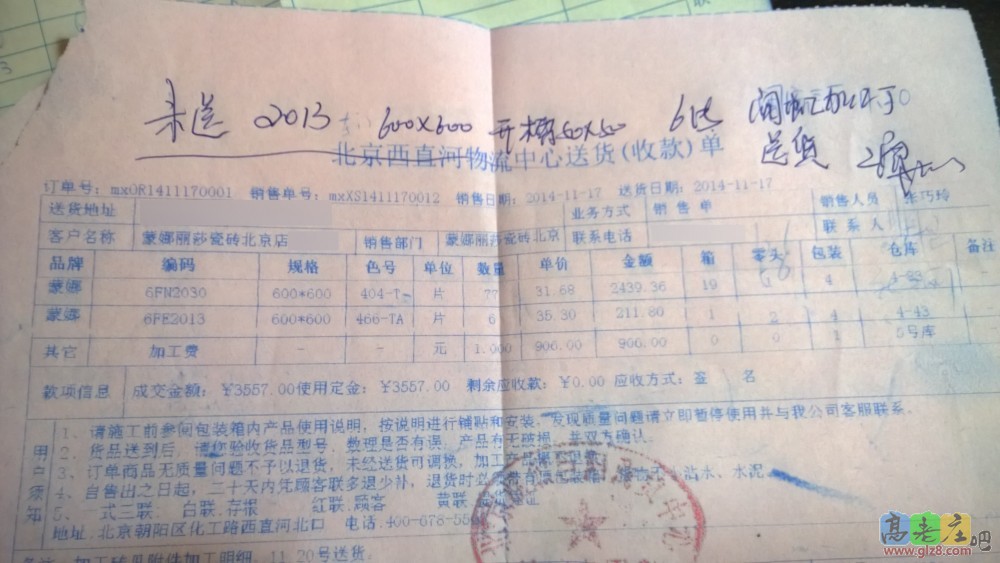 未送 2013 600×600 开槽50×50 6片
送货
北京西直河物流中心送货(收款)单
订单号: mxOR1411170001 销售单号: mxXS1411170012 销售日期: 2014-11-17 送货日期: 2014-11-17
送货地址 业务方式 销售单 销售人员 朱巧玲
客户名称 蒙娜丽莎瓷砖北京店 销售部门 蒙娜丽莎瓷砖北京 联系电话 联系人
品牌 编码 规格 色号 单位 数量 单价 金额 箱 零头 包装 仓库 备注
蒙娜 6FN2030 600*600 404-T 片 77 31.68 2439.36 19 4 4-83
蒙娜 6FE2013 600*600 466-TA 片 6 35.30 211.80 1 2 4 4-43
其它 加工费 - - 元 1.000 906.00 906.00 0 0 1 5号库
款项信息 成交金额: ¥3557.00使用定金: ¥3557.00 剩余应收款: ¥0.00 应收方式: 签 名
用户须知
1、请施工前参阅包装箱内产品使用说明，按说明进行铺贴和安装，发现质量问题请立即暂停使用并与我公司客服联系.
2、货品送到后，请您验收货品型号，数理是否有误，产品有无破损，并双方确认.
3、订单商品无质量问题不予以退货，未经送货可调换，加工产品
4、自售出之日起，二十天内凭顾客联多退少补，退货时必须 沾水、水泥
5、一式三联 白联.存根 红联.顾客 黄联
地址.北京朝阳区化工路西直河北口 电话.400-678-55
11.20号送货
高老庄吧
www.glz8.com